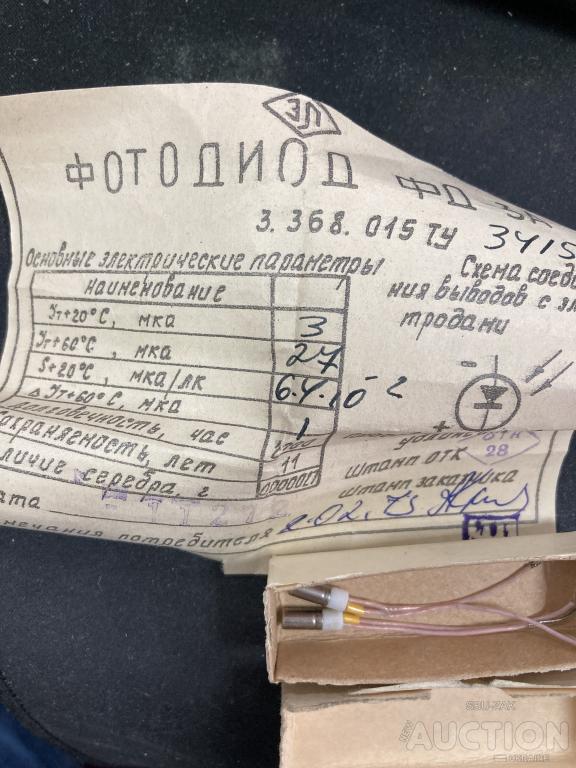 ЭЛ
ФОТОДИОД ФД
3.368.015 ТУ 3415
Основные электрические параметры
Наименование
Iт+20°С, мка 3
Iт+60°С, мка 27
S+20°С, мка/лк 6.4·10⁻²
Δ Iт+60°С, мка 1
Долговечность, час
Сохраняемость, лет 11
личие серебра, г
Схема соеди
ния выводов с эл
тродами
-
+
ОТК
28
штамп ОТК
штамп заказчика
ата
2.02.73
мечания потребителя
SBU-ZAK
NEW
AUCTION
UKRAINE